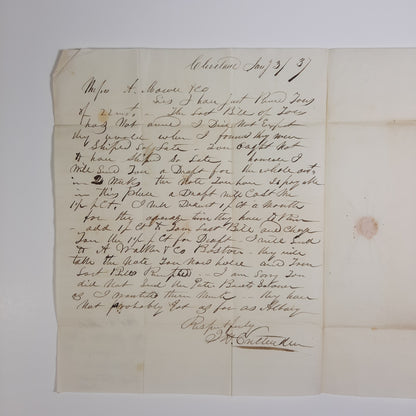 Cleveland Jany 3/37
Messrs A. Mower & Co
Sirs I have just Recd Yours
of 22 inst. - The Last Bill of Goods
has Not arrived I Did Not Expect
they would when I found they were
Shiped So Late - You ought Not
to have Shiped So Late however I
Will Send You a Draft for the whole amt.
in 2 Weeks the Note You have is payable
in this place a Draft will Cost
1½ pCt. I will Deduct 1 pCt a Month
for the
add 1½ pCt to Your Last Bill and Charge
You the 1½ pCt for Draft - I will Send
to A. & Co Boston they will
take the Note You Now hold and Your
Last Bill Receipted - I am Sorry You
did Not Send the Gate Bests Sooner
as I wanted them Much - they have
Not probably Got as far as Albany
Respectfully
J. H. Crittenden